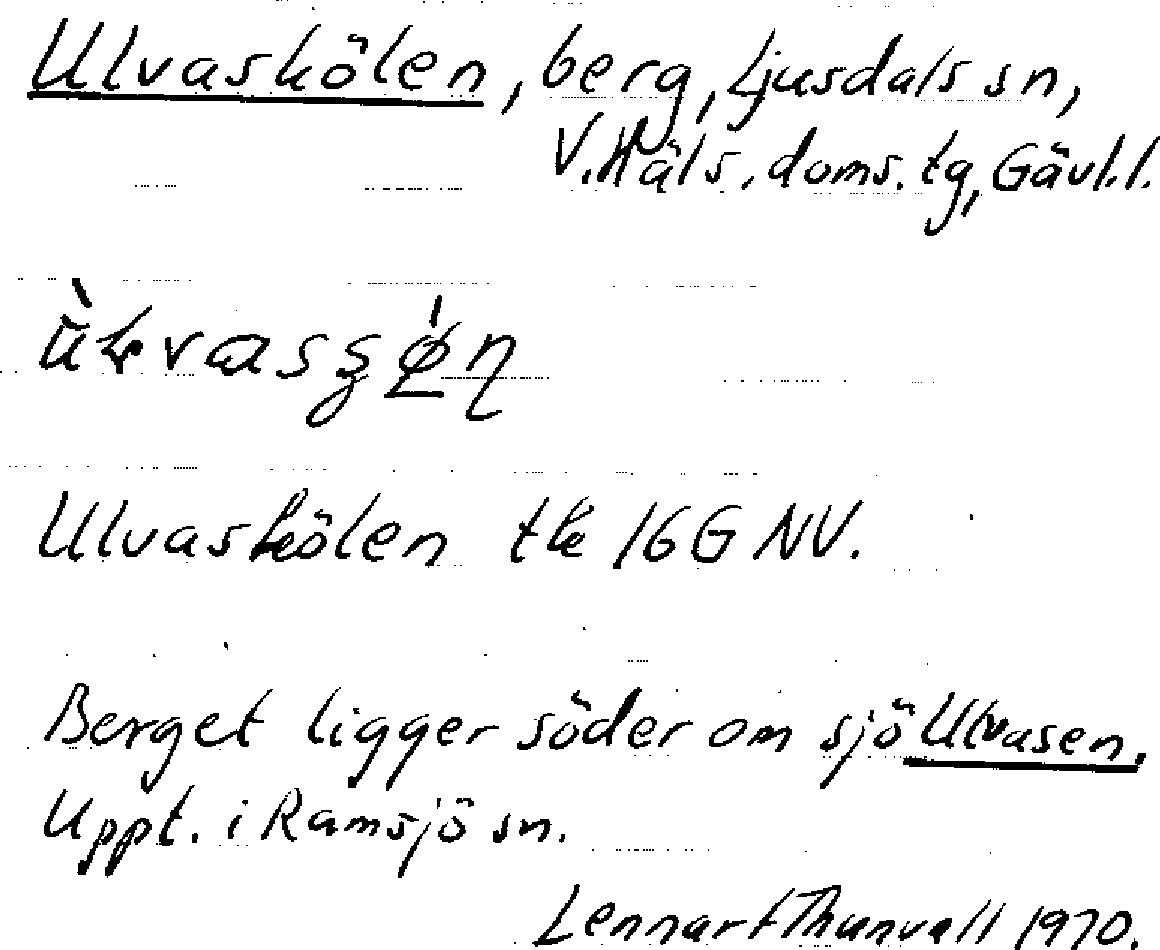 Ulvaskölen, berg, Ljusdals sn,
V. Häls. doms. tg, Gävl. l.
Ulvaskölen tk 16G NV.
Berget ligger söder om sjö Ulvasen.
Uppt. i Ramsjö sn.
Lennart Thunvall 1970.